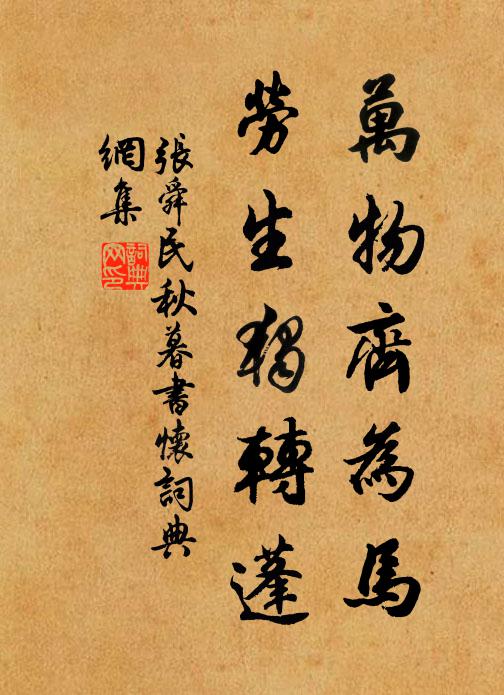 萬物齊為馬
勞生獨轉蓬
張舜民秋暮書懷詞典
網集
詞典网印